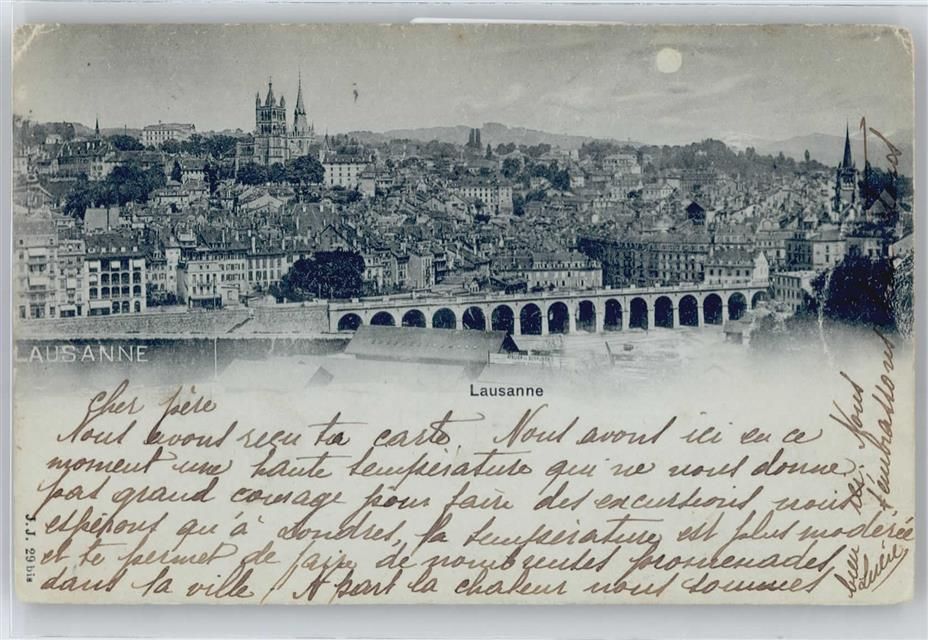 LAUSANNE
Lausanne
J. J. 29 bis
Cher père
Nous avons reçu ta carte. Nous avons ici en ce
moment une haute température qui ne nous donne
pas grand courage pour faire des excursions, nous
espérons qu'à Londres, la température est plus modérée
et te permet de faire de nombreuses promenades
dans la ville. A part la chaleur nous sommes
bien ici. Nous
t'embrassons
Lucie